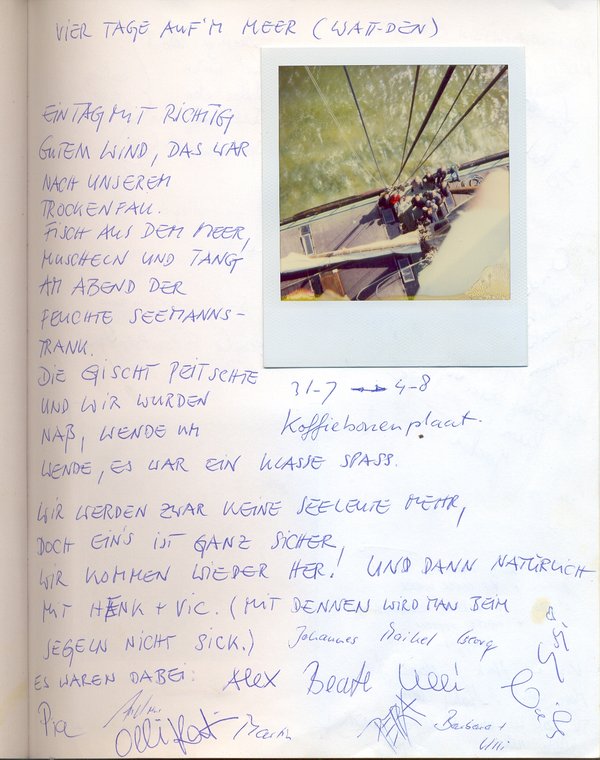 VIER TAGE AUF'M MEER (WATT-DEN)
EIN TAG MIT RICHTIG
GUTEM WIND, DAS WAR
NACH UNSEREM
TROCKENFALL.
FISCH AUS DEM MEER,
MUSCHELN UND TANG
AM ABEND DER
FEUCHTE SEEMANNS-
TRANK.
DIE GISCHT PEITSCHTE
UND WIR WURDEN
NAß, WENDE UM
WENDE, ES WAR EIN KLASSE SPASS.
31-7 → 4-8
Koffiebonenplaat.
WIR WERDEN ZWAR KEINE SEELEUTE MEHR,
DOCH EIN'S IST GANZ SICHER,
WIR KOMMEN WIEDER HER! UND DANN NATÜRLICH
MIT HENK + VIC. (MIT DENNEN WIRD MAN BEIM
SEGELN NICHT SICK.) Johannes Maikel Georg
ES WAREN DABEI: Alex Beate Ulli
Pia Olli Martin Barbara +
Ulli